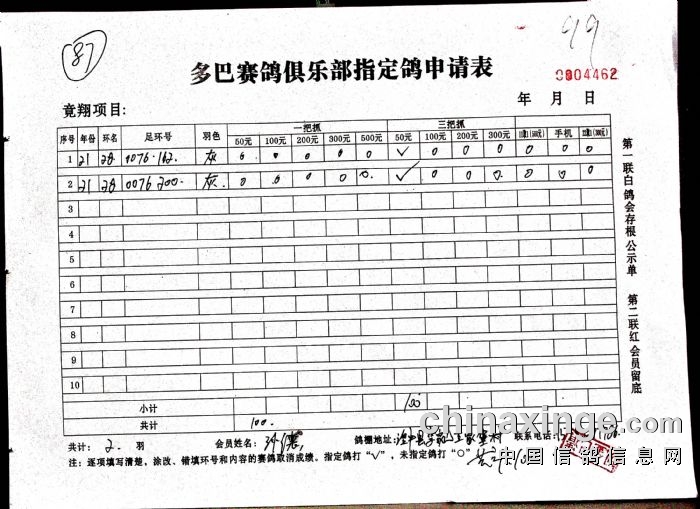 87
99
多巴赛鸽俱乐部指定鸽申请表
0004462
竟翔项目:
年 月 日
序号 年份 环名 足环号 羽色 一把抓 三把抓
50元 100元 200元 300元 500元 50元 100元 200元 300元 手机
1 21 0076·162 灰 0 0 0 0 0 √ 0 0 0 0 0 0
2 21 0076 200 灰 0 0 0 0 0 √ 0 0 0 0 0 0
3
4
5
6
7
8
9
10
小计 100
共计 100.
共计: 2. 羽 会员姓名: 鸽棚地址: 联系电话:
注:逐项填写清楚,涂改、错填环号和内容的赛鸽取消成绩。指定鸽打"√",未指定鸽打"○"
第一联白鸽会存根公示单 第二联红会员留底
chinaxinge.com
中国信鸽信息网